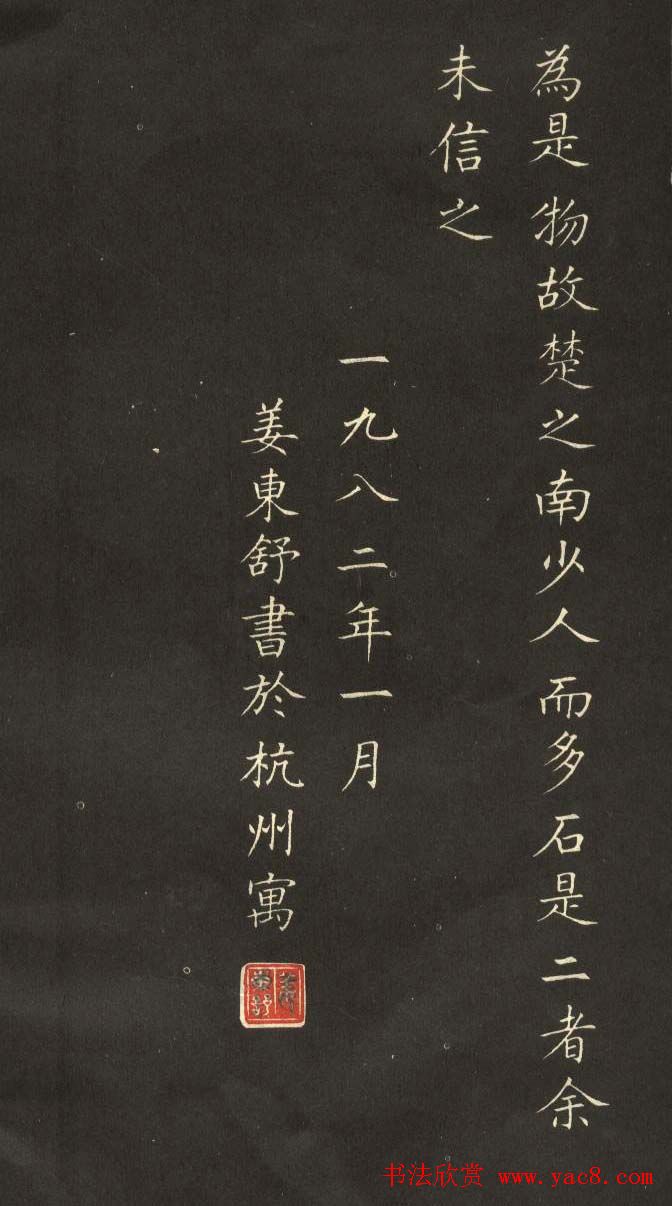 為是物故楚之南少人而多石是二者余
未信之
一九八二年一月
姜東舒書於杭州寓
书法欣赏 www.yac8.com